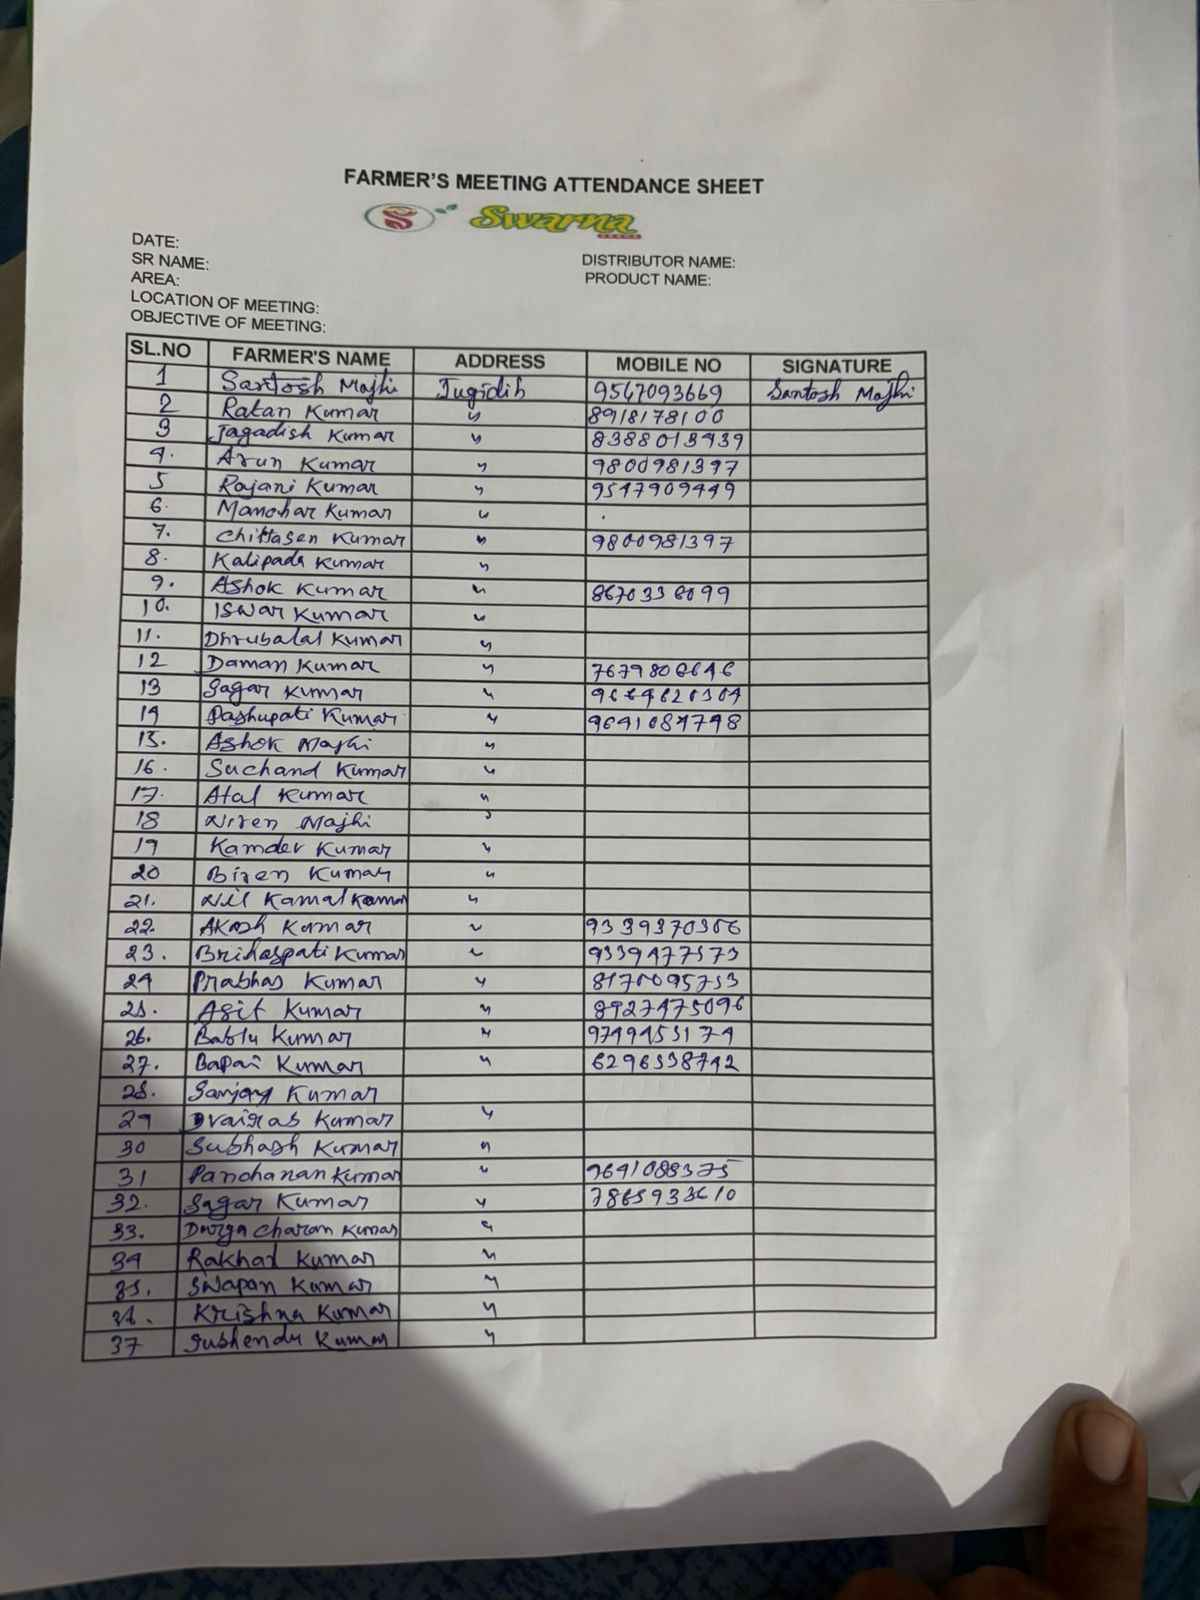 FARMER'S MEETING ATTENDANCE SHEET
Swarna
DATE:
SR NAME: DISTRIBUTOR NAME:
AREA: PRODUCT NAME:
LOCATION OF MEETING:
OBJECTIVE OF MEETING:
SL.NO FARMER'S NAME ADDRESS MOBILE NO SIGNATURE
1 Santosh Majhi Jugidih 9547093669 Santosh Majhi
2 Ratan Kumar " 8918178100
3 Jagadish Kumar " 8388013939
4. Arun Kumar " 9800981397
5 Rajani Kumar " 9547909449
6. Manohar Kumar "
7. Chittasen Kumar " 9800981397
8. Kalipada Kumar "
9. Ashok Kumar " 8670336099
10. ISWAR Kumar "
11. Dhrubalal Kumar "
12 Daman Kumar " 7679806646
13 Sagar Kumar "
14 Pashupati Kumar "
15. Ashok Majhi "
16. Suchand Kumar "
17. Atal Kumar "
18 Niren Majhi "
19 Kamdev Kumar "
20 Biren Kumar "
21. Nil Kamal Kumar "
22. Akash Kumar " 9339370366
23. Brihaspati Kumar " 9339477573
24 Prabhas Kumar "
25. Asit Kumar " 8927475096
26. Bablu Kumar " 9749453174
27. Bapai Kumar " 6296338742
28. Sanjay Kumar
29 Kumar "
30 Subhash Kumar "
31 Panchanan Kumar " 9641088375
32. Sagar Kumar "
33. Durga Charan Kumar "
34 Rakhal Kumar "
35. Swapan Kumar "
36. Krishna Kumar "
37 Subhendu Kumar "